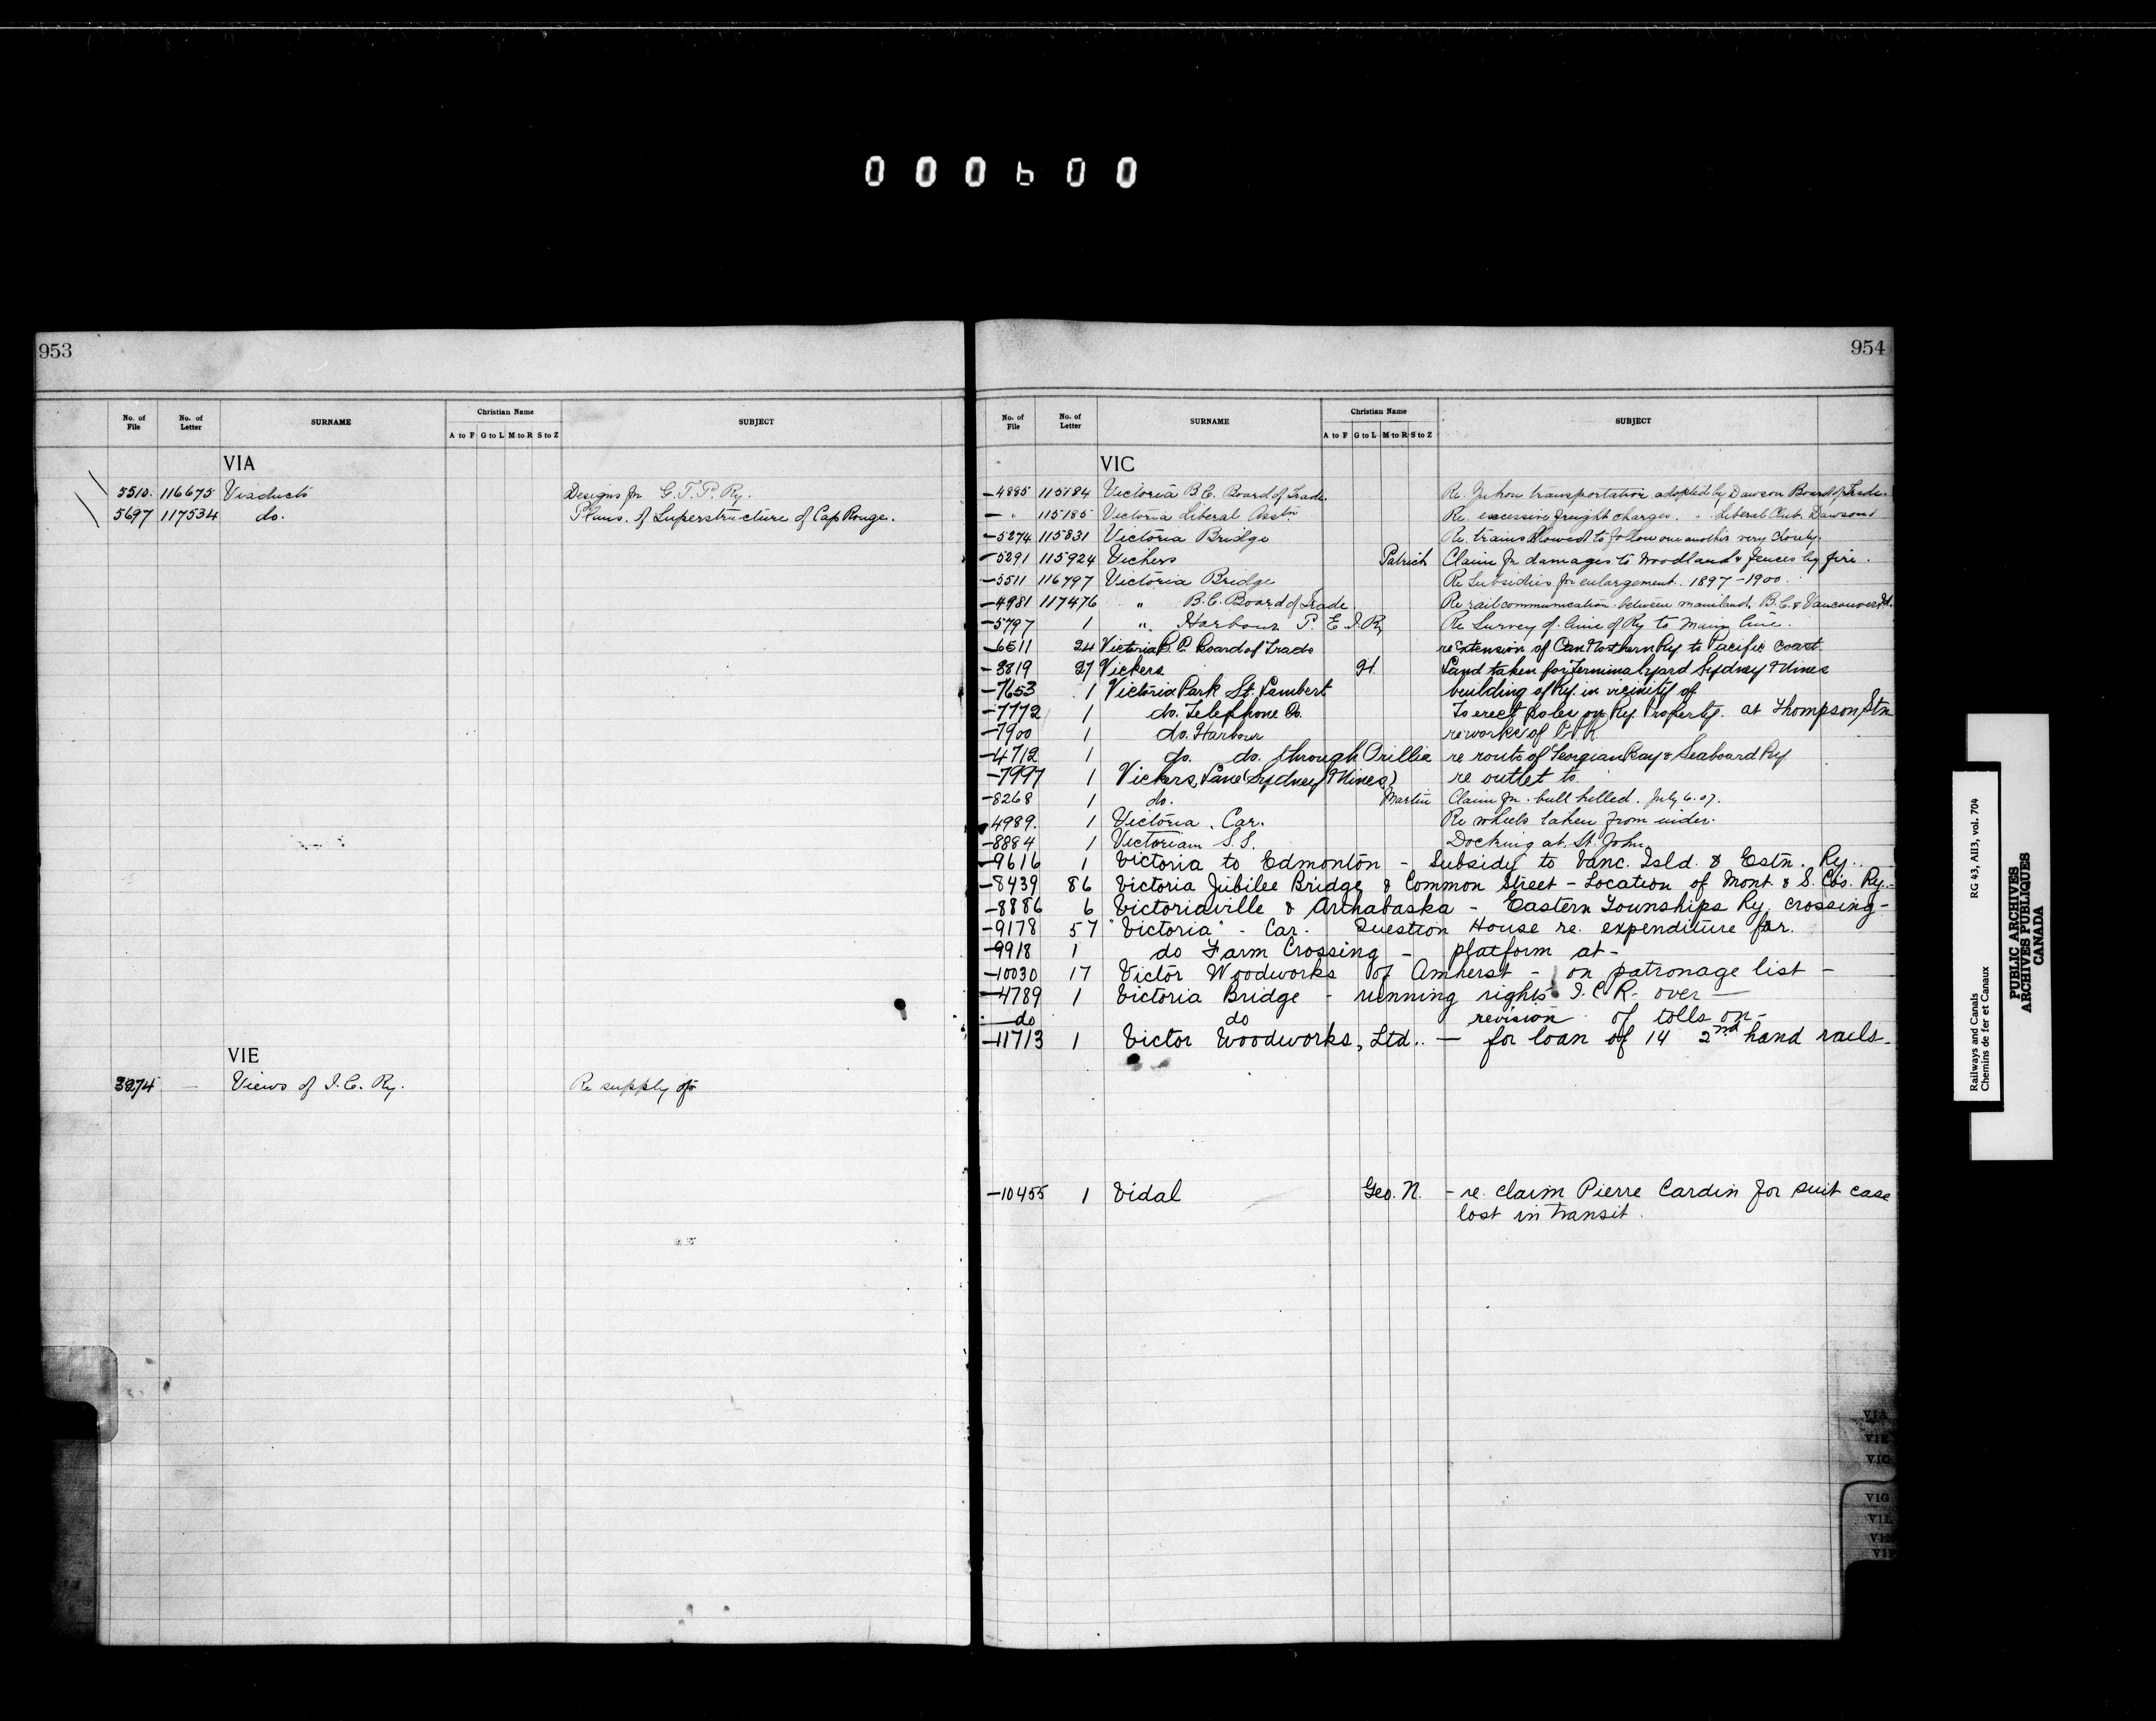 000600
953
No. of File No. of Letter SURNAME Christian Name SUBJECT
A to F G to L M to R S to Z
VIA
5510. 116675 Viaducts Designs for G.T.P. Ry.
5697 117534 do. Plans. of Superstructure of Cap Rouge.
VIE
3274 — Views of I.C. Ry. Re supply of
954
No. of File No. of Letter SURNAME Christian Name SUBJECT
A to F G to L M to R S to Z
VIC
-4885 115184 Victoria B.C. Board of Trade. Re. Yukon transportation adopted by Dawson Board of Trade.
- " 115185 Victoria Liberal Asstn Re. excessive freight charges. " Liberal Club. Dawson
-5274 115831 Victoria Bridge Re. trains allowed to follow one another very closely.
-5291 115924 Vickers Patrick Claim for damages to woodland & fences by fire.
-5511 116797 Victoria Bridge Re Subsidies for enlargement. 1897-1900.
-4981 117476 " B.C. Board of Trade. Re rail communication between mainland, B.C. & Vancouver Id.
-5797 1 " Harbour P.E.I.Ry Re Survey of line of Ry to Main line.
-6511 24 Victoria B.C. Board of Trade re Extension of Can Northern Ry to Pacific Coast.
-3819 27 Vickers H. Land taken for Terminal yard Sydney Mines
-7653 1 Victoria Park St. Lambert building of Ry. in vicinity of
-7772 1 do. Telephone Co. To erect poles on Ry. Property. at Thompson Stn
-7900 1 do. Harbour re works of
-4712 1 do. do. through Orillia re route of Georgian Bay & Seaboard Ry
-7997 1 Vickers Lane (Sydney Mines) re outlet to.
-8268 1 do. Martin Claim for bull killed. July 6.07.
-4989. 1 Victoria. Car. Re wheels taken from under.
-8884 1 Victorian S.S. Docking at St. John.
-9616 1 Victoria to Edmonton - Subsidy to Vanc. Isld. & Estn. Ry..
-8439 86 Victoria Jubilee Bridge & Common Street - Location of Mont. & S. Cos. Ry.-
-8886 6 Victoriaville & Arthabaska - Eastern Townships Ry. crossing-
-9178 57 "Victoria" - Car. Question House re. expenditure for.
-9918 1 do Farm Crossing - platform at-
-10030 17 Victor Woodworks of Amherst - on patronage list -
-4789 1 Victoria Bridge - running rights I.C.R. over —
do do revision of tolls on-
-11713 1 Victor Woodworks, Ltd. — for loan of 14 2nd hand rails.
-10455 1 Vidal Geo. N. - re. claim Pierre Cardin for suit case
lost in transit.
VIA
VIE
VIC
VIG
VIL
Railways and Canals RG 43, AII3, vol. 704
Chemins de fer et Canaux
PUBLIC ARCHIVES
ARCHIVES PUBLIQUES
CANADA